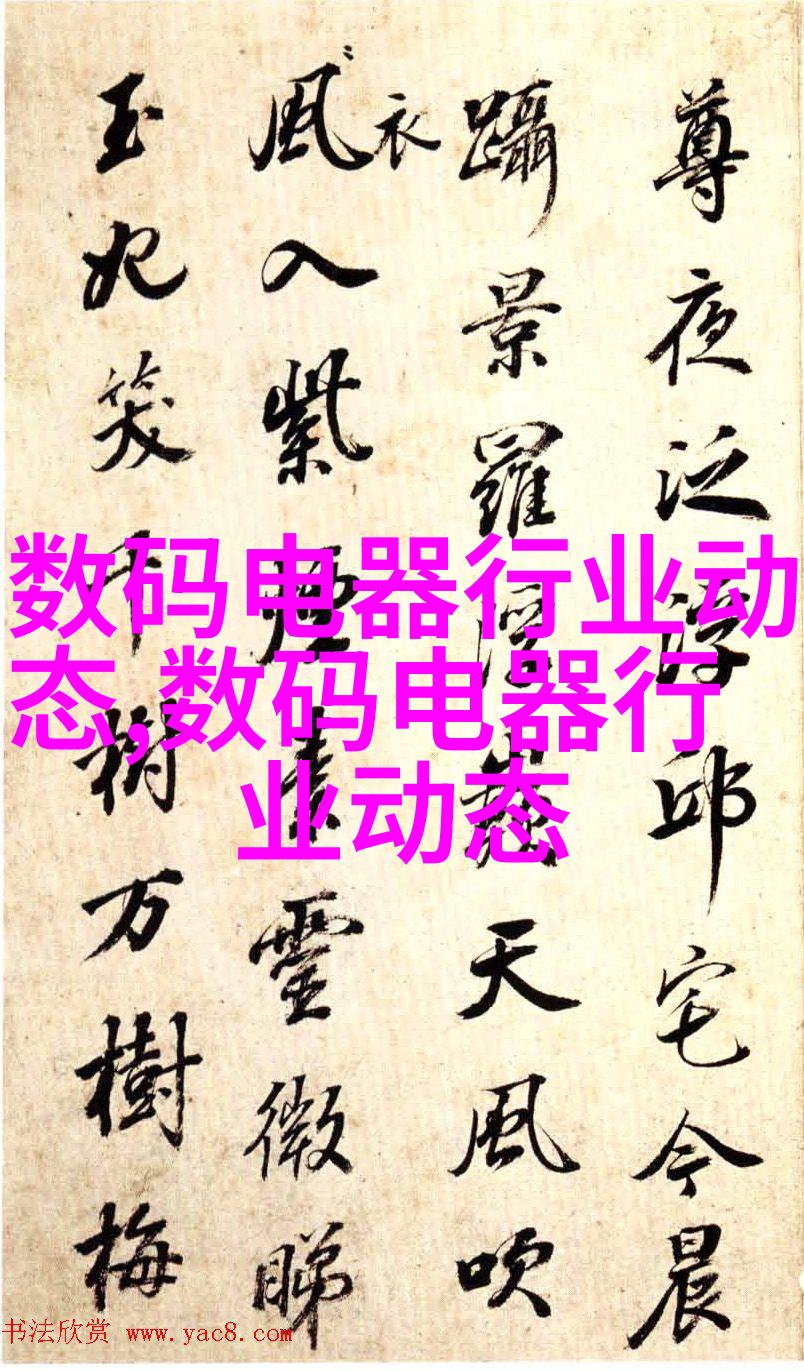 尊夜泛浮邱宅今晨
躡景羅浮天風吹
衣
風入紫煙素靈微睇
玉妃笑千樹万樹梅
数码电器行业动
态,数码电器行
业动态
书法欣赏 www.yac8.com